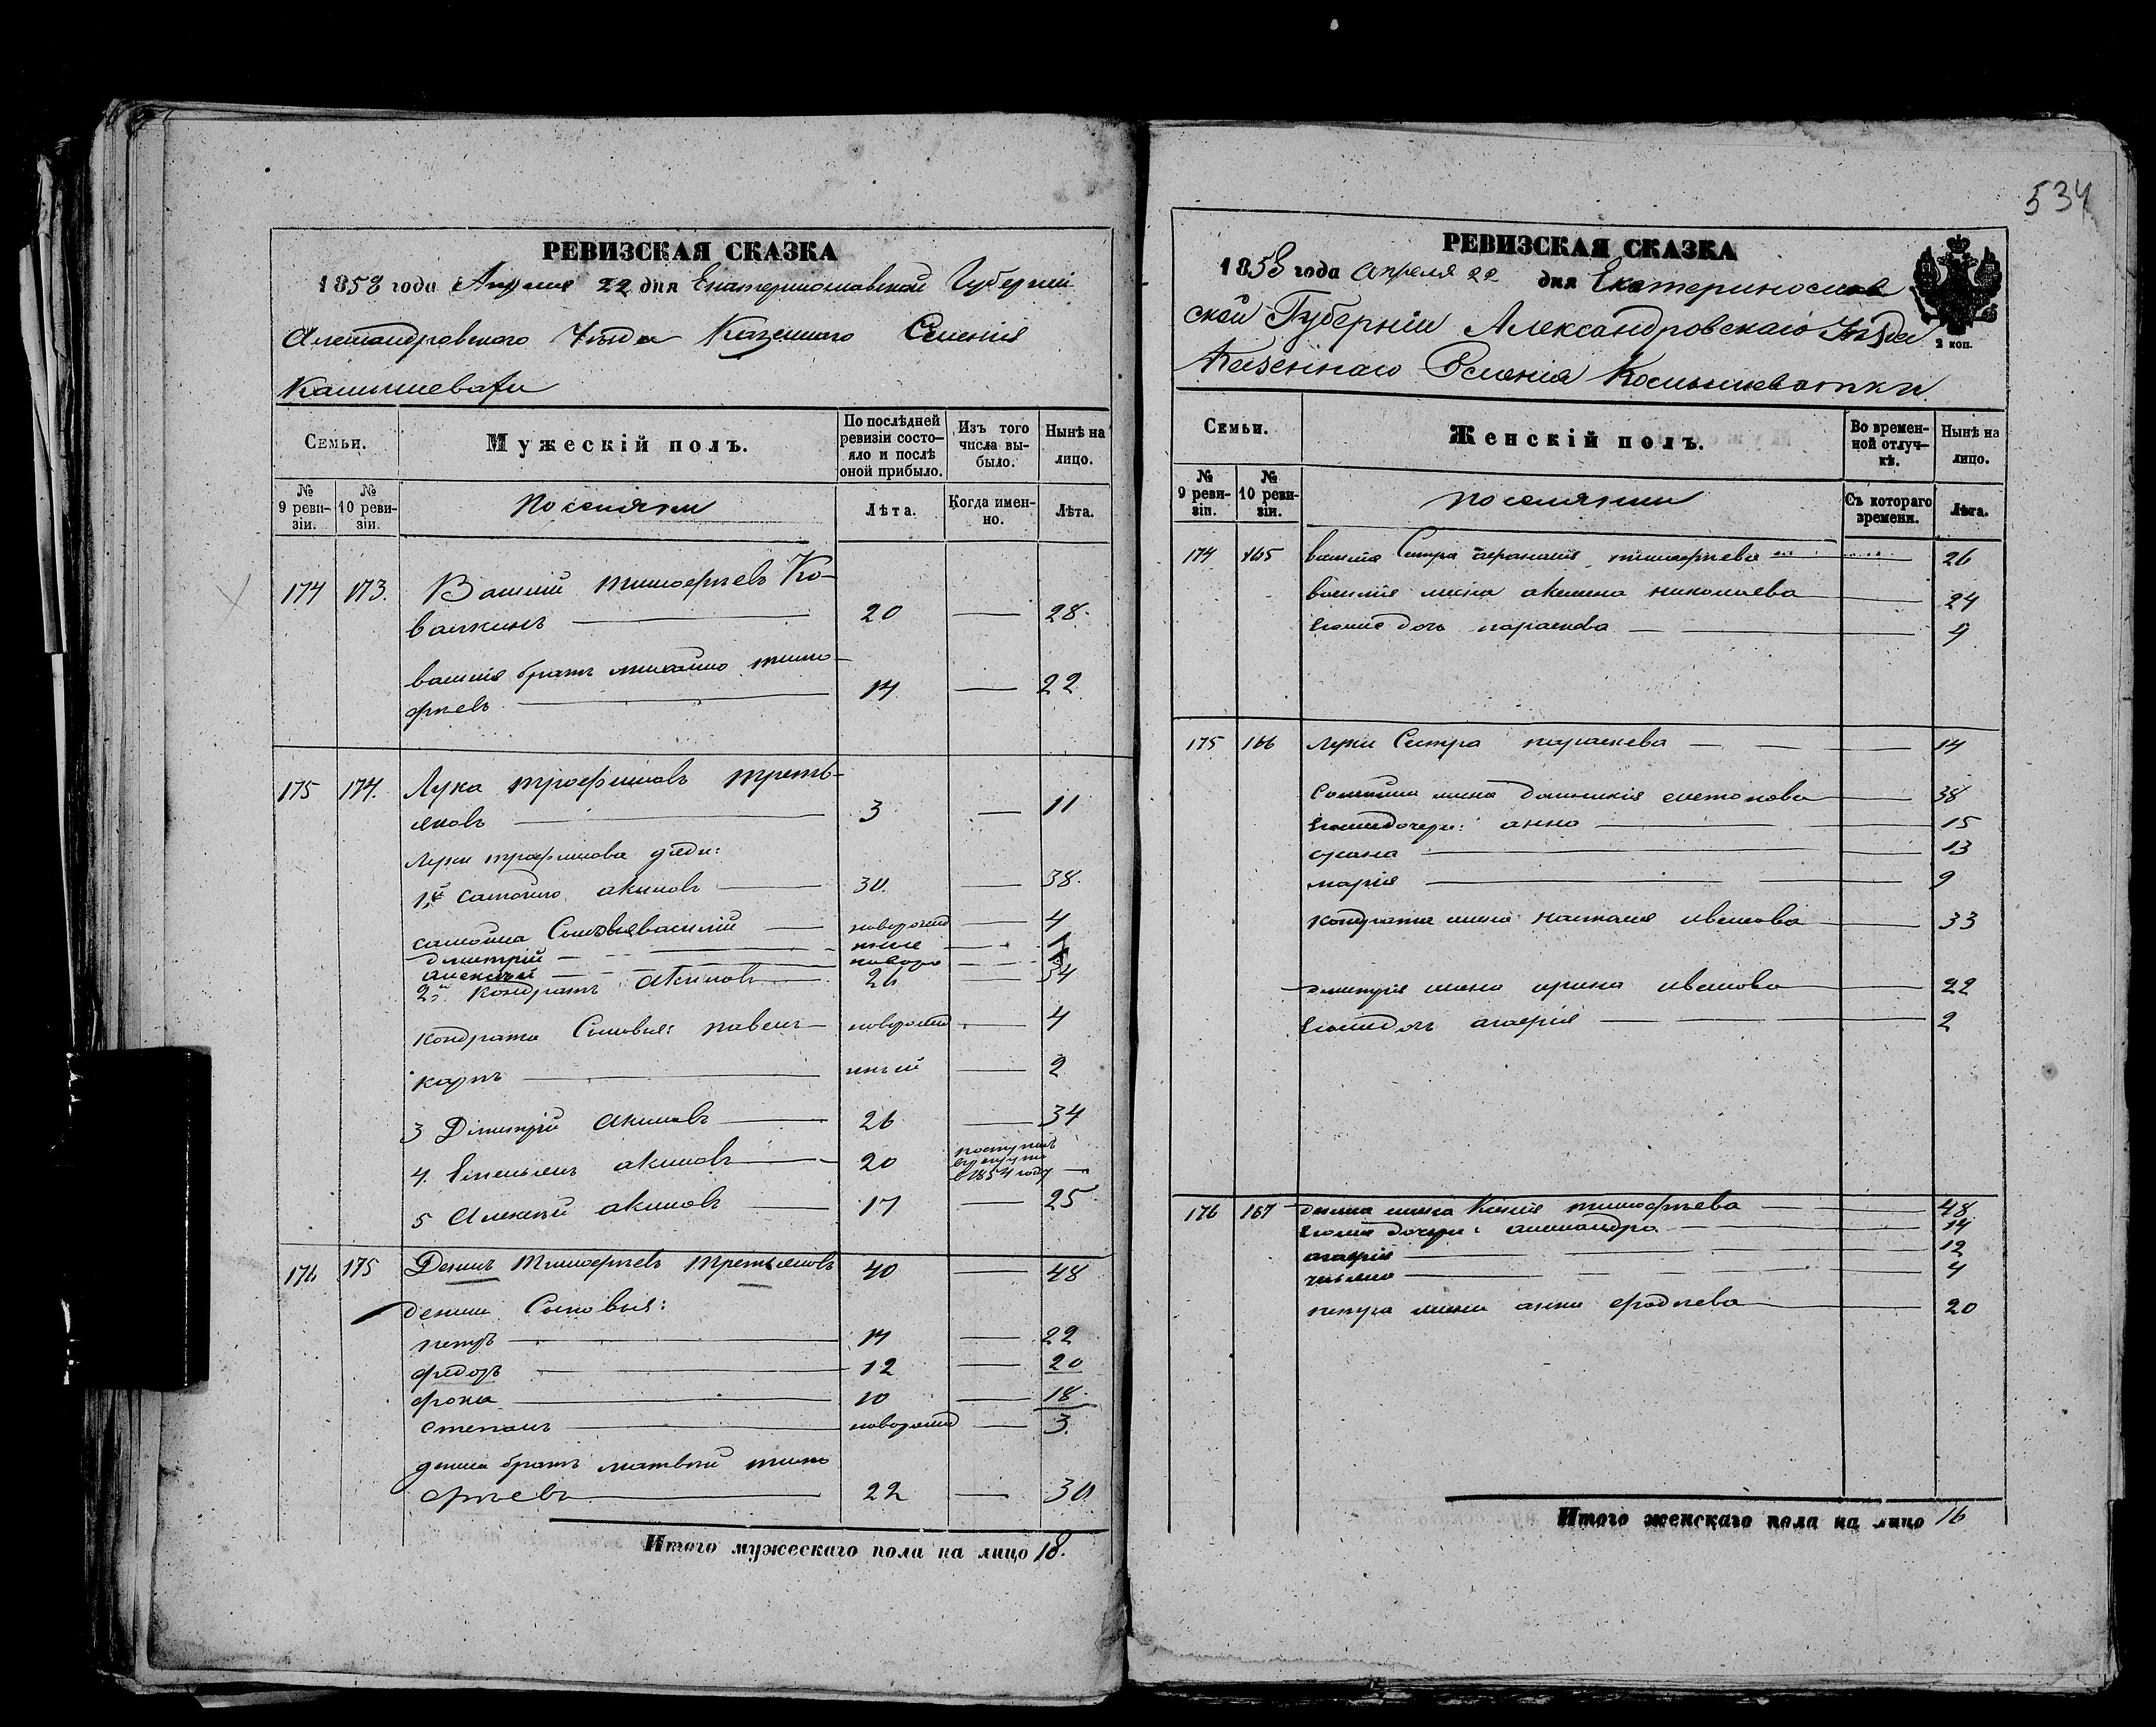 534
РЕВИЗСКАЯ СКАЗКА
1858 года Апреля 22 дня Екатеринославской Губерніи
Александровского Уѣзда Казенного Селенія
Камышевахи
Семьи.
Мужескій полъ.
По послѣдней ревизіи состояло и послѣ оной прибыло.
Изъ того числа выбыло.
Нынѣ на лицо.
№ 9 ревизіи.
№ 10 ревизіи.
поселяни
Лѣта.
Когда именно.
Лѣта.
174 173. Василій тимофѣевъ Ко-
валкинъ 20 — 28.
василія братъ михайло тимо-
фѣевъ 14 — 22
175 174. Лука трофимовъ треть-
яковъ 3 — 11
Луки трофимова дяди:
1й самойло акимовъ 30. — 38.
самойла Сыновья василій новорожд — 4
дмитрій
алексѣй
2й кондратъ акимовъ 26 — 34
кондрата Сыновья: павелъ новорожд — 4
карпъ — 2
3 Дмитрій акимовъ 26 — 34
4. Емельянъ акимовъ 20 поступилъ в рекруты в 1854 году —
5 Алексѣй акимовъ 17 — 25
176 175 Денисъ тимофѣевъ третьяковъ 40 — 48
дениса Сыновья:
петръ 14 — 22
федоръ 12 — 20
фока 10 — 18
степанъ новорожд — 3.
дениса братъ матвѣй тимо
фѣевъ 22 — 30
Итого мужескаго пола на лицо 18.
РЕВИЗСКАЯ СКАЗКА
1858 года апреля 22 дня Екатеринослав
ской Губерніи Александровскаго Уѣзда
2 коп.
Казеннаго Селенія
Семьи.
Женскій полъ.
Во временной отлучкѣ.
Нынѣ на лицо.
№ 9 ревизіи.
№ 10 ревизіи.
поселянки
Съ котораго времени.
Лѣта.
174 165 василія Сестра тимофѣева 26
василія жена акулина николаева 24
Егоже дочь параскева 4
175 166 Луки Сестра параскева 14
Самойла жена 38
Егоже дочери: анна 15
орина 13
марія 9
кондрата жена наталія иванова 33
дмитрія жена орина иванова 22
Егоже дочь агафія 2
176 167 дениса жена тимофѣева 48
Егоже дочери: александра 14
агафія 12
ульяна 4
петра жена анна 20
Итого женскаго пола на лицо 16